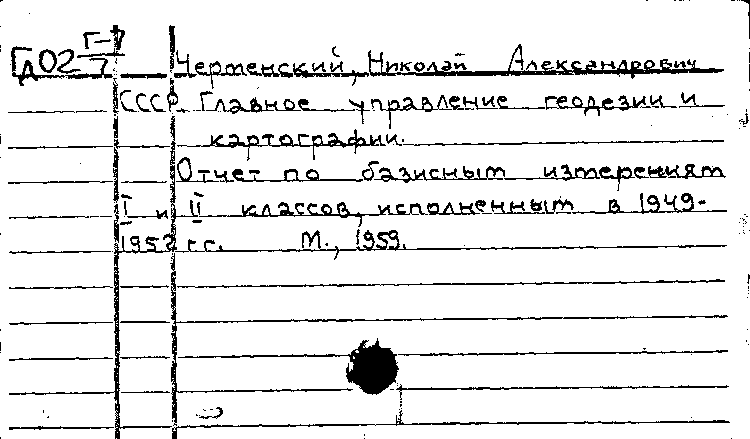 Гд02 Г-7
7
Черменский, Николай Александрович
СССР. Главное управление геодезии и
картографии.
Отчет по базисным измерениям
I и II классов, исполненным в 1949-
1952 г.г. М., 1959.